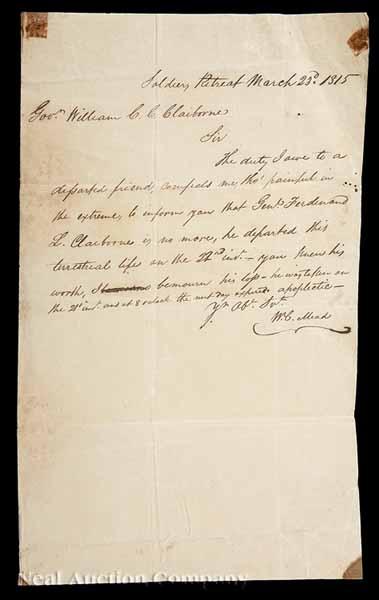 Soldiers Retreat March 23d. 1815
Govr. William C. C. Claiborne
Sir
The duty I owe to a
departed friend, compels me, tho' painful in
the extreme, to inform you that Genl. Ferdinand
L. Claiborne is no more, he departed this
terrestrial life on the 22nd inst. - you knew his
worth, I bemourn his loss - he was taken on
the 21st inst. and at 8 oclock the next day expired apoplectic -
Yr. Obt. Svt.
W. C. Mead
Neal Auction Company